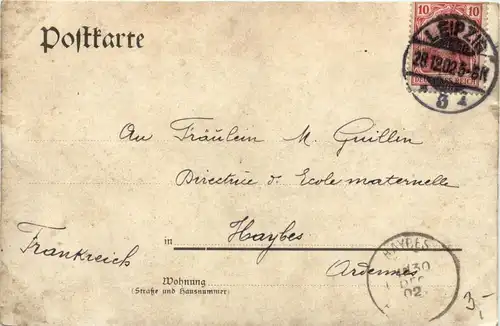 Postkarte
10 10
LEIPZIG
28.12.02.5-6N
8
An Fräulein M. Guillin
Directrice d. Ecole maternelle
in Haybes
Frankreich
Ardennes
HAYBES
30
DEC
02
Wohnung
(Straße und Hausnummer)
3,-